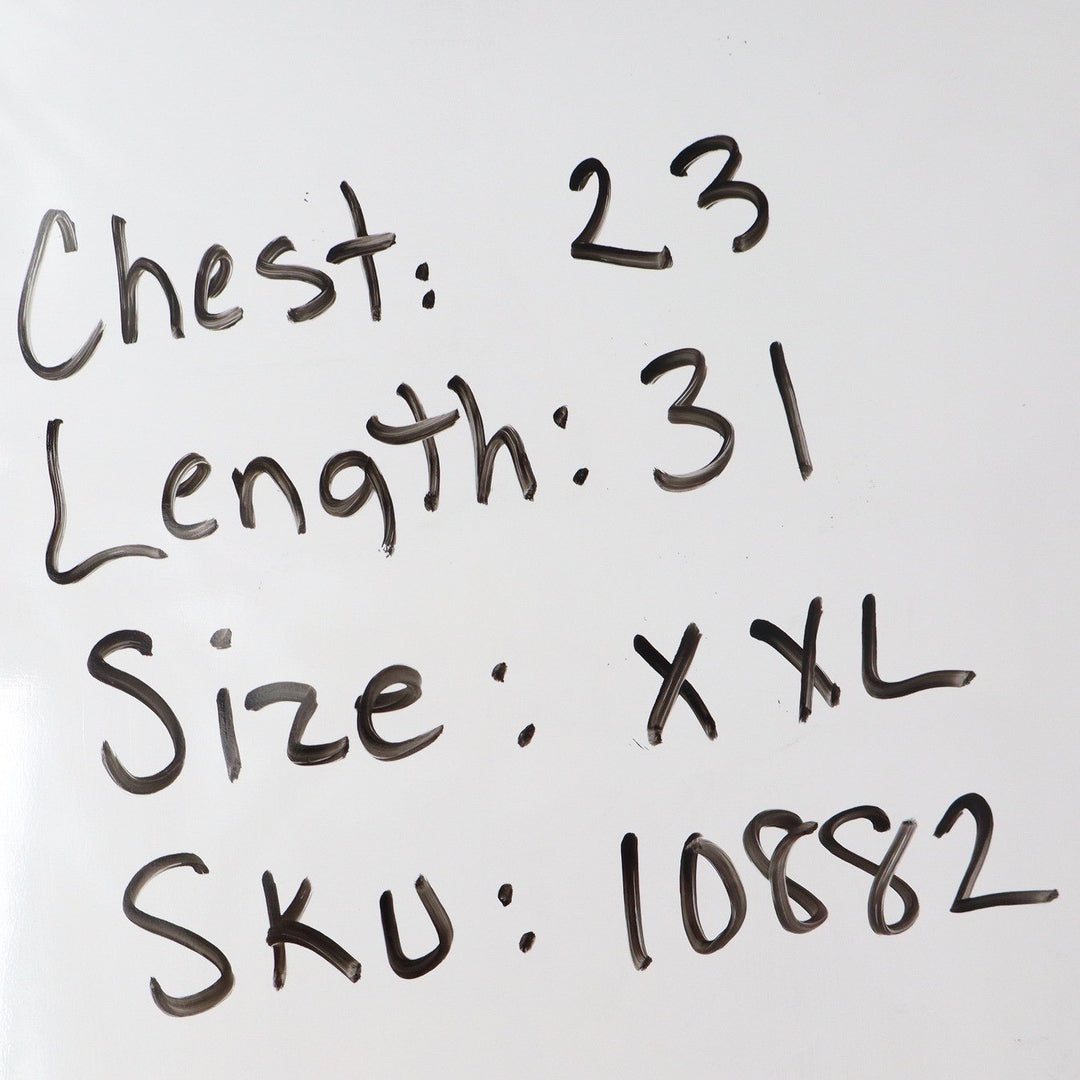 Chest: 23
Length: 31
Size: XXL
SKU: 10882